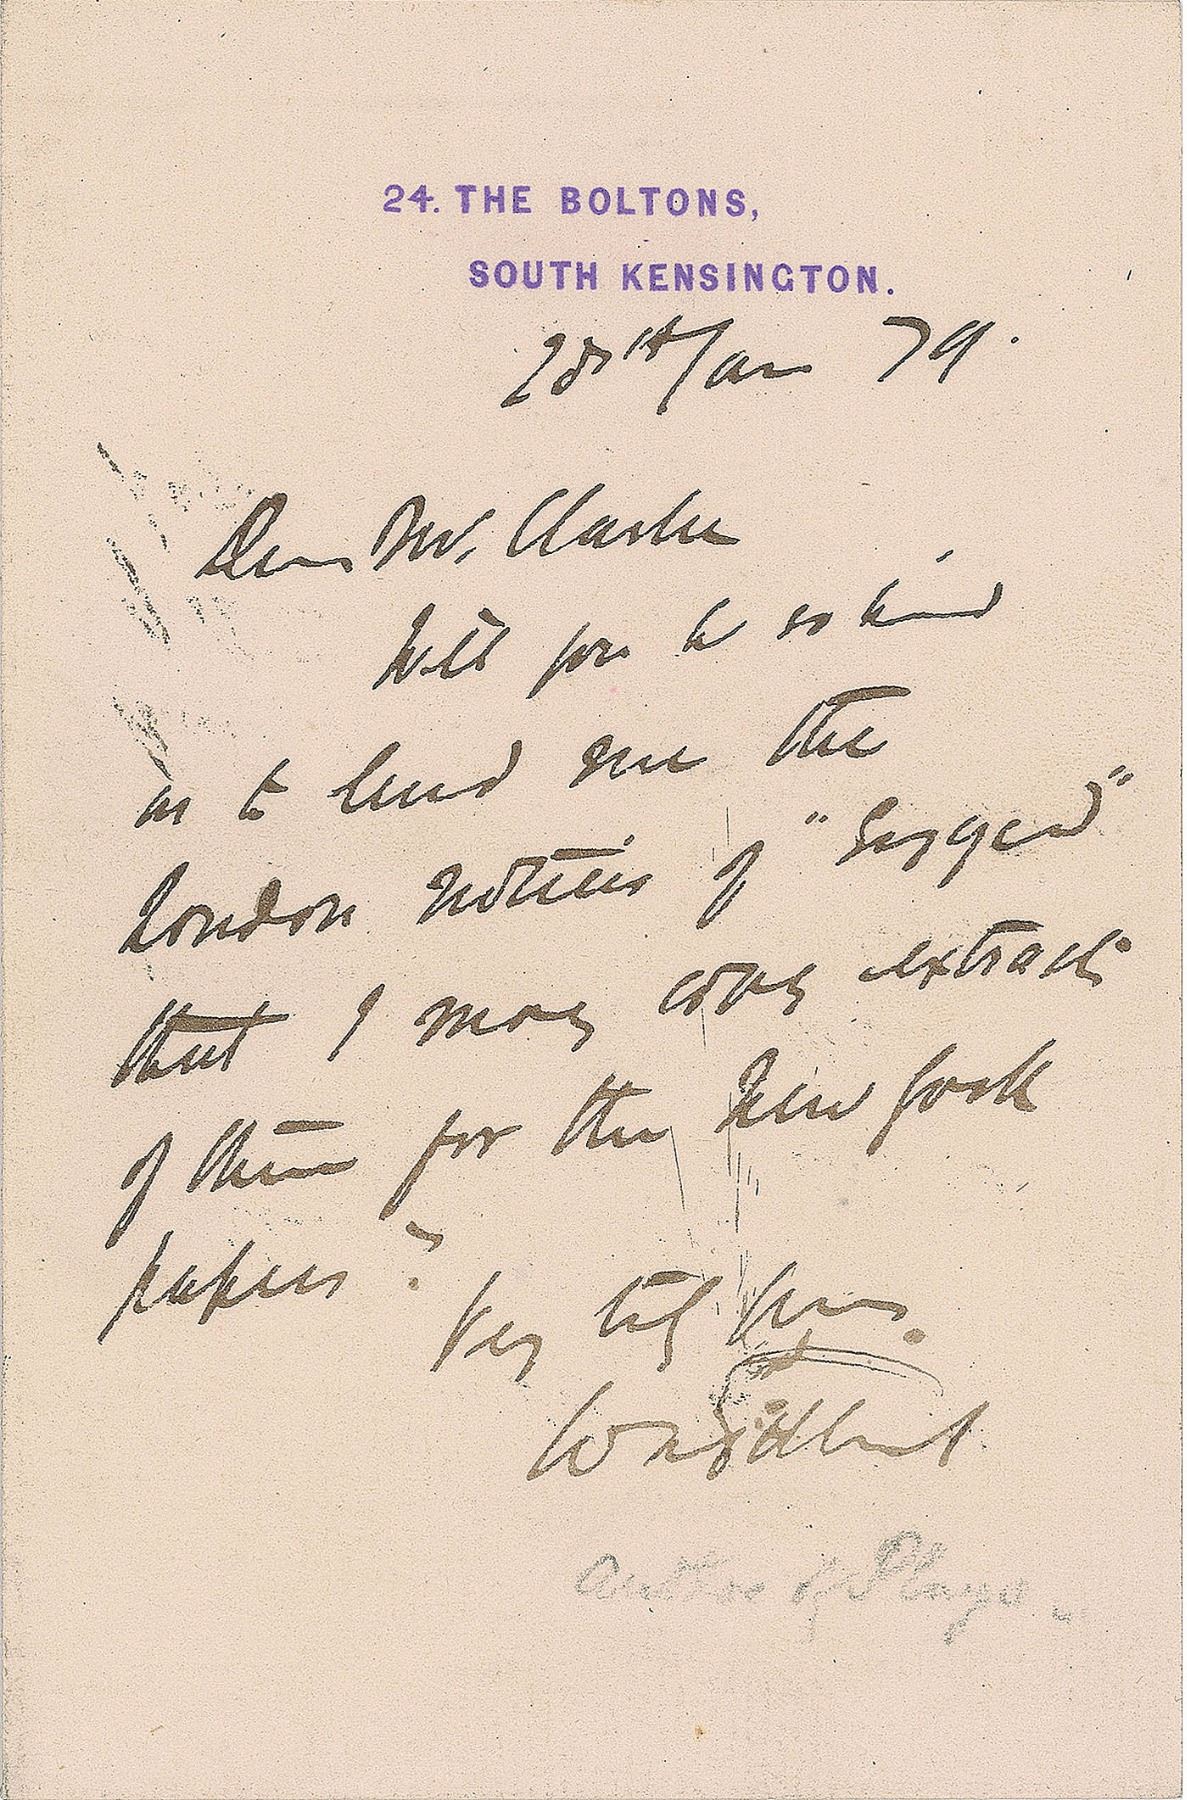 24. THE BOLTONS,
SOUTH KENSINGTON.
28th Jan 79.
Dear Mr. Clarke
Will you be so kind
as to lend me the
London notices of "Engaged"
that I may copy extracts
of them for the New York
papers?
Very truly Yours.
WSGilbert
Author of Plays.